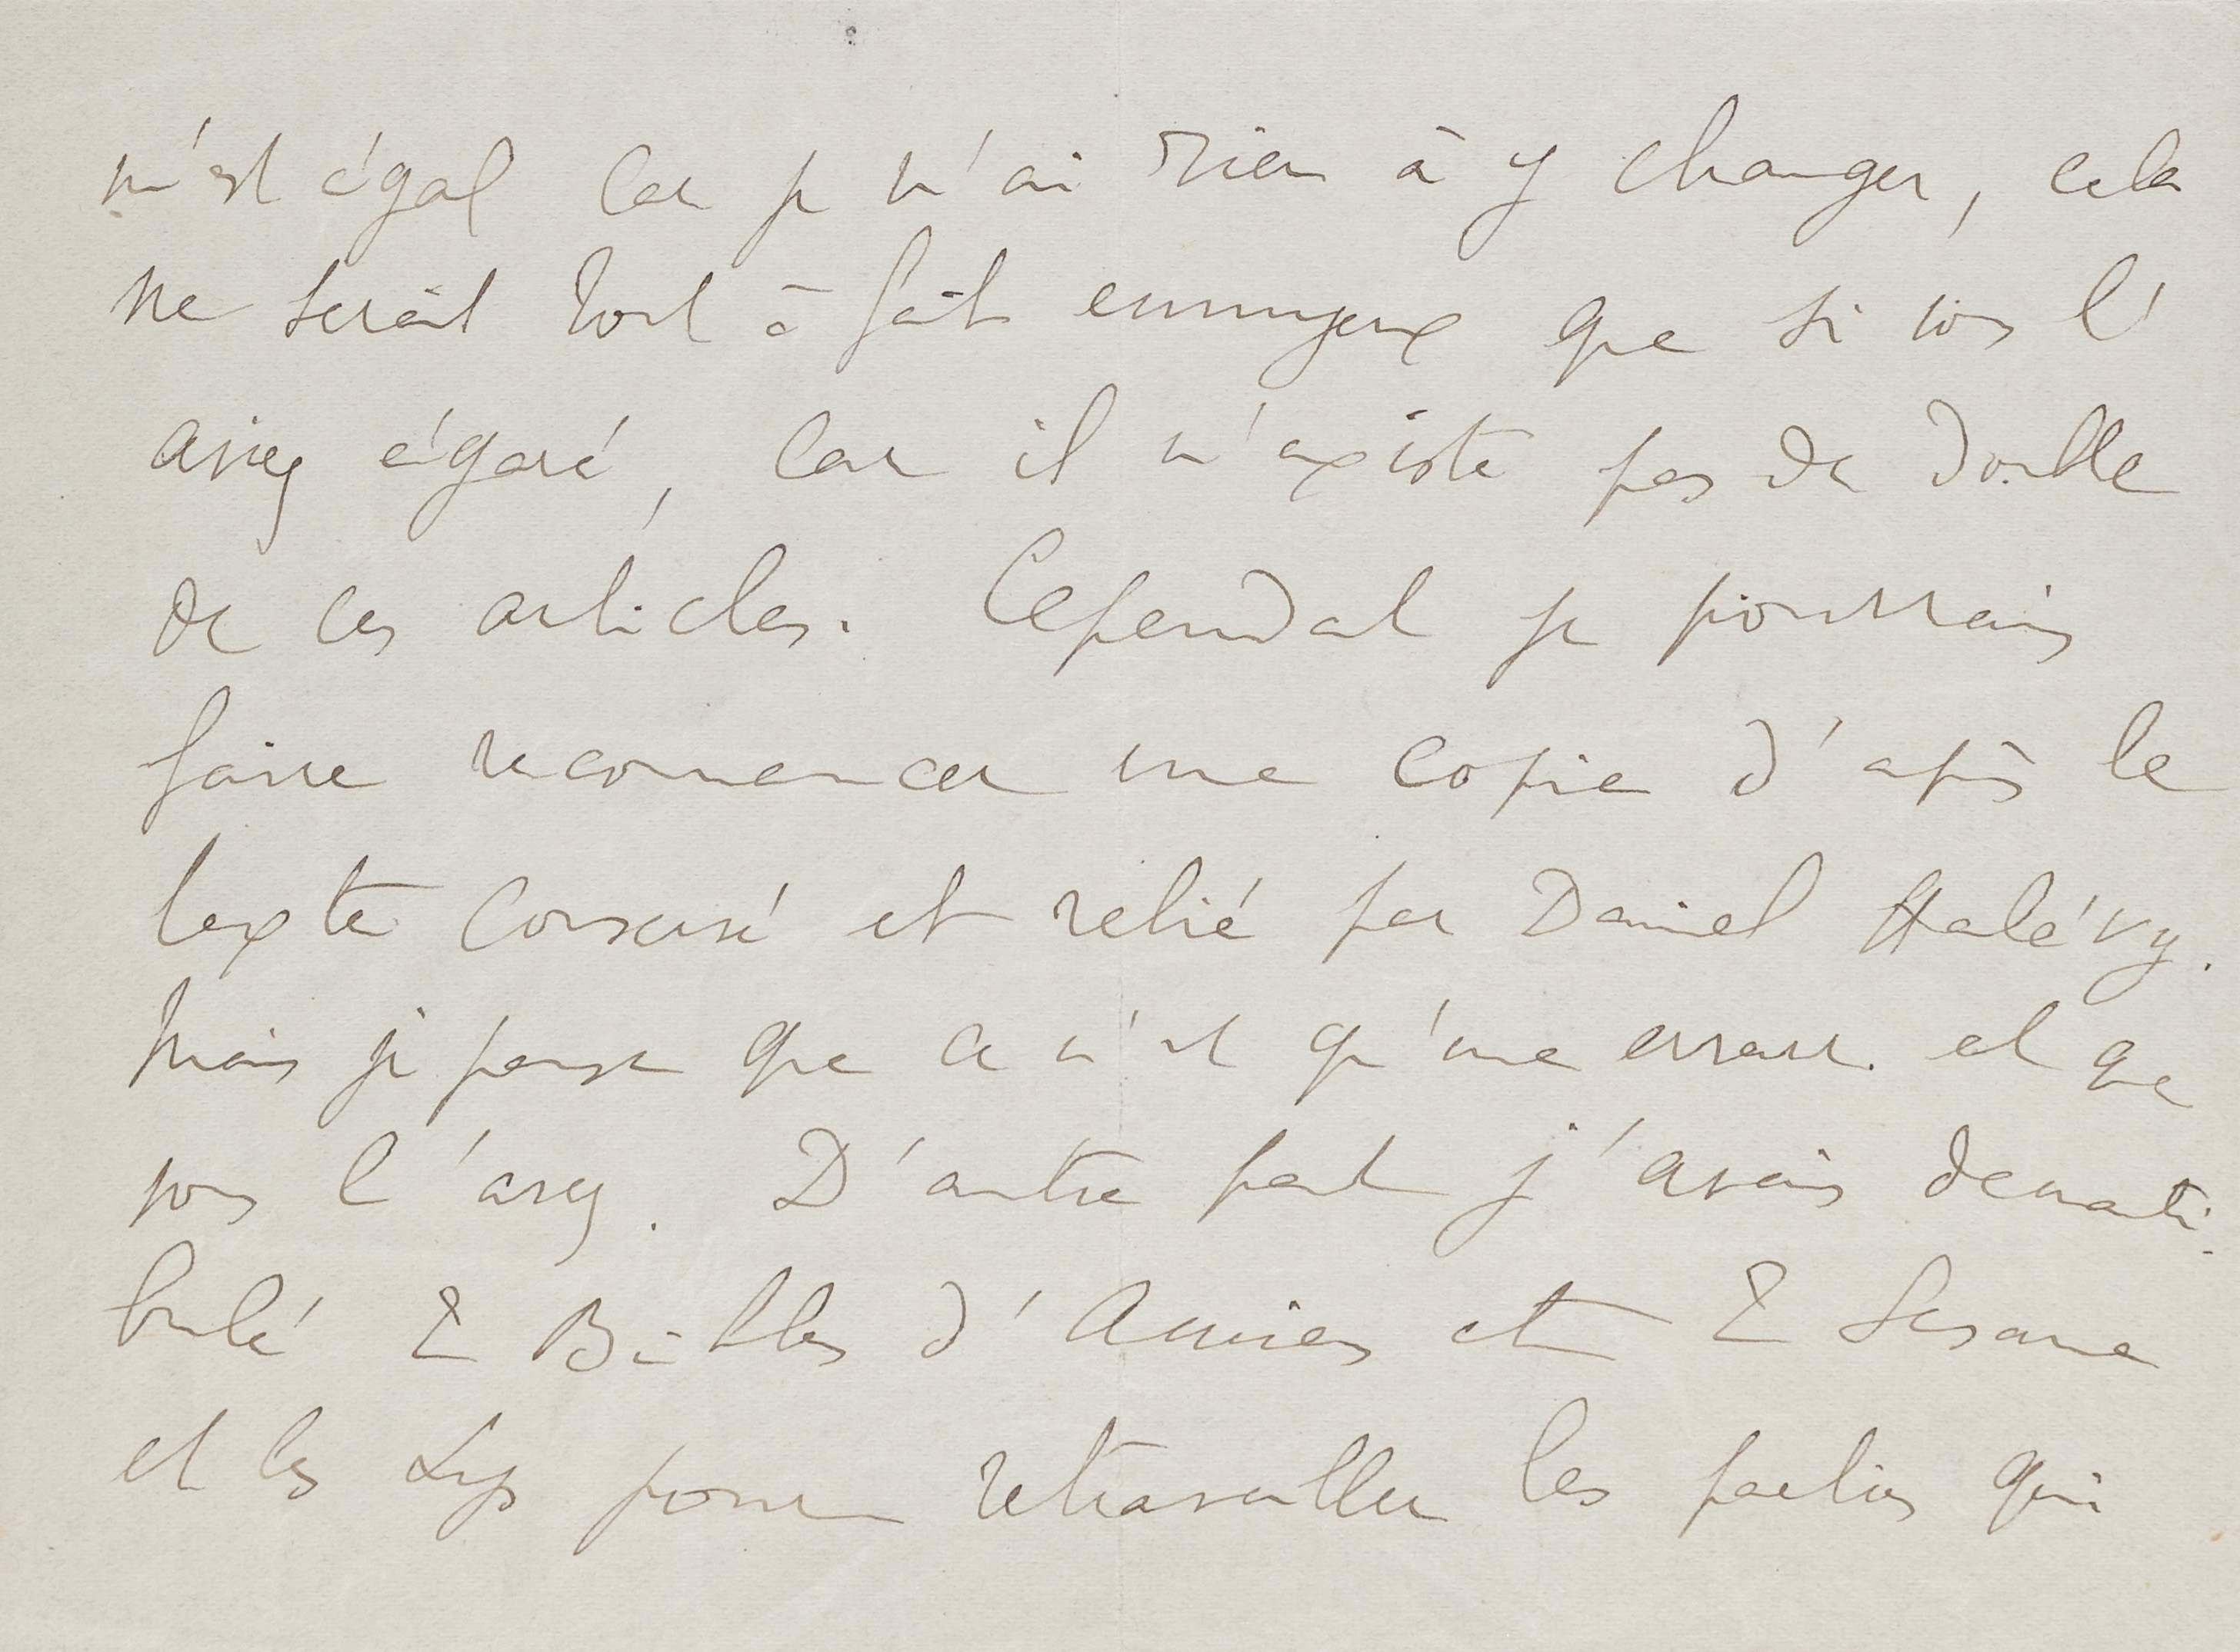 m'est égal car je n'ai rien à y changer, cela
ne serait tout à fait ennuyeux que si vous l'
aviez égaré, car il n'existe pas de double
de ces articles. Cependant je pourrais
faire recommencer une copie d'après le
texte conservé et relié par Daniel Halévy.
Mais je pense que ce n'est qu'une erreur et que
vous l'avez. D'autre part j'avais démanti-
bulé 2 Bibles d'Amiens et 2 Sesame
et les Lys pour retravailler les parties qui